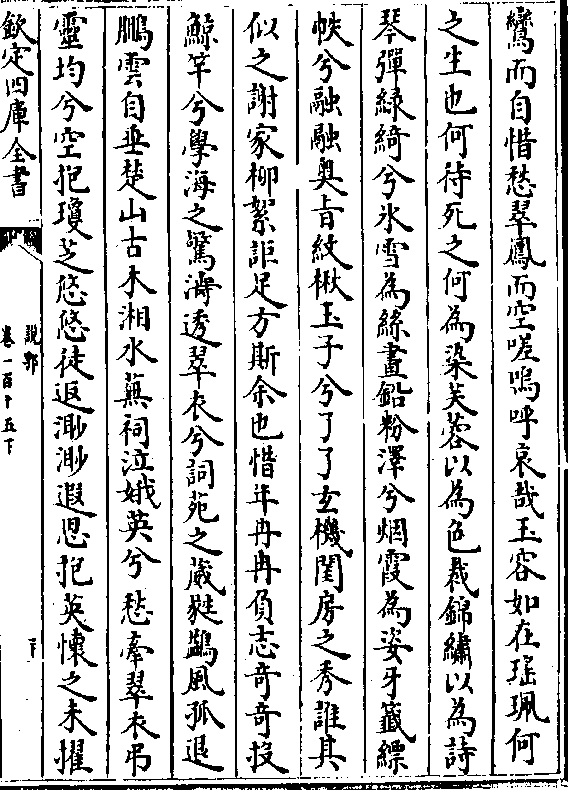 鸞而自惜愁翠鳳而空嗟嗚呼哀哉玉容如在瑤珮何
之生也何待死之何為染芙蓉以為色裁錦繡以為詩
琴彈綠綺兮氷雪為絲畫鉛粉澤兮烟霞為姿牙籤縹
帙兮融融奧旨紋楸玉子兮了了玄機閨房之秀誰其
似之謝家柳絮詎足方斯余也惜年冉冉負志奇奇投
鯨竿兮學海之驚濤透翠衣兮詞苑之葳甤鷁風孤退
鵬雲自垂楚山古木湘水蕪祠泣娥英兮愁牽翠衣弔
靈均兮空抱瓊芝悠悠徒返渺渺遐思抱英懐之未擢
欽定四庫全書
說郛
卷一百十五下